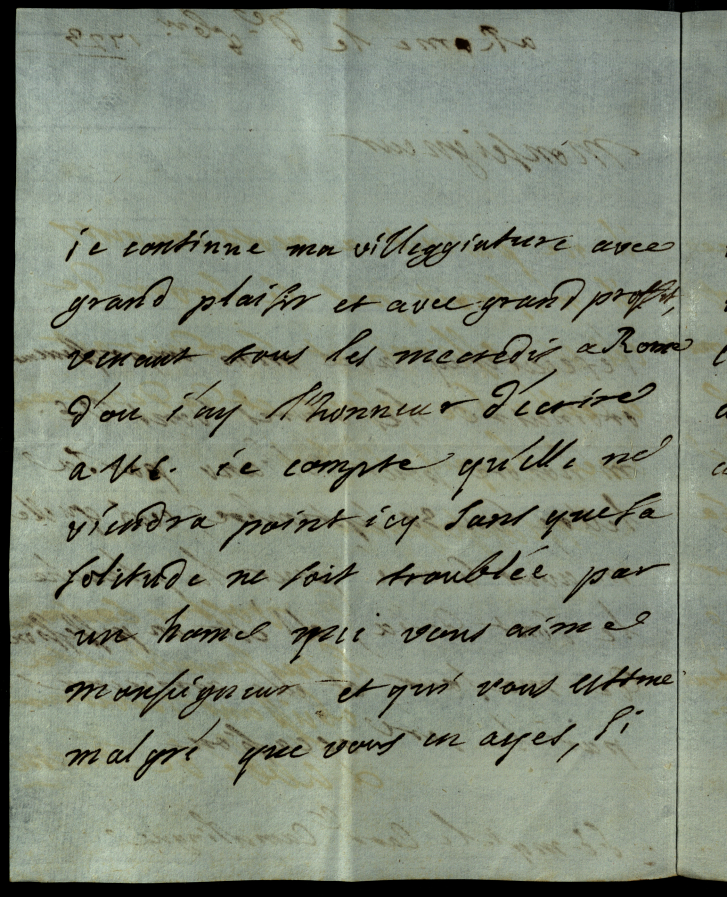 ie continue ma villeggiature avec
grand plaisir et avec grand proffit,
venant tous les mecredis a Rome
d'ou i'ay l'honneur d'écrire
a V.E. ie compte qu'elle ne
viendra point icy sans que sa
solitude ne soit troublée par
un home qui vous aime
monseigneur et qui vous estime
malgré que vous en ayes, si